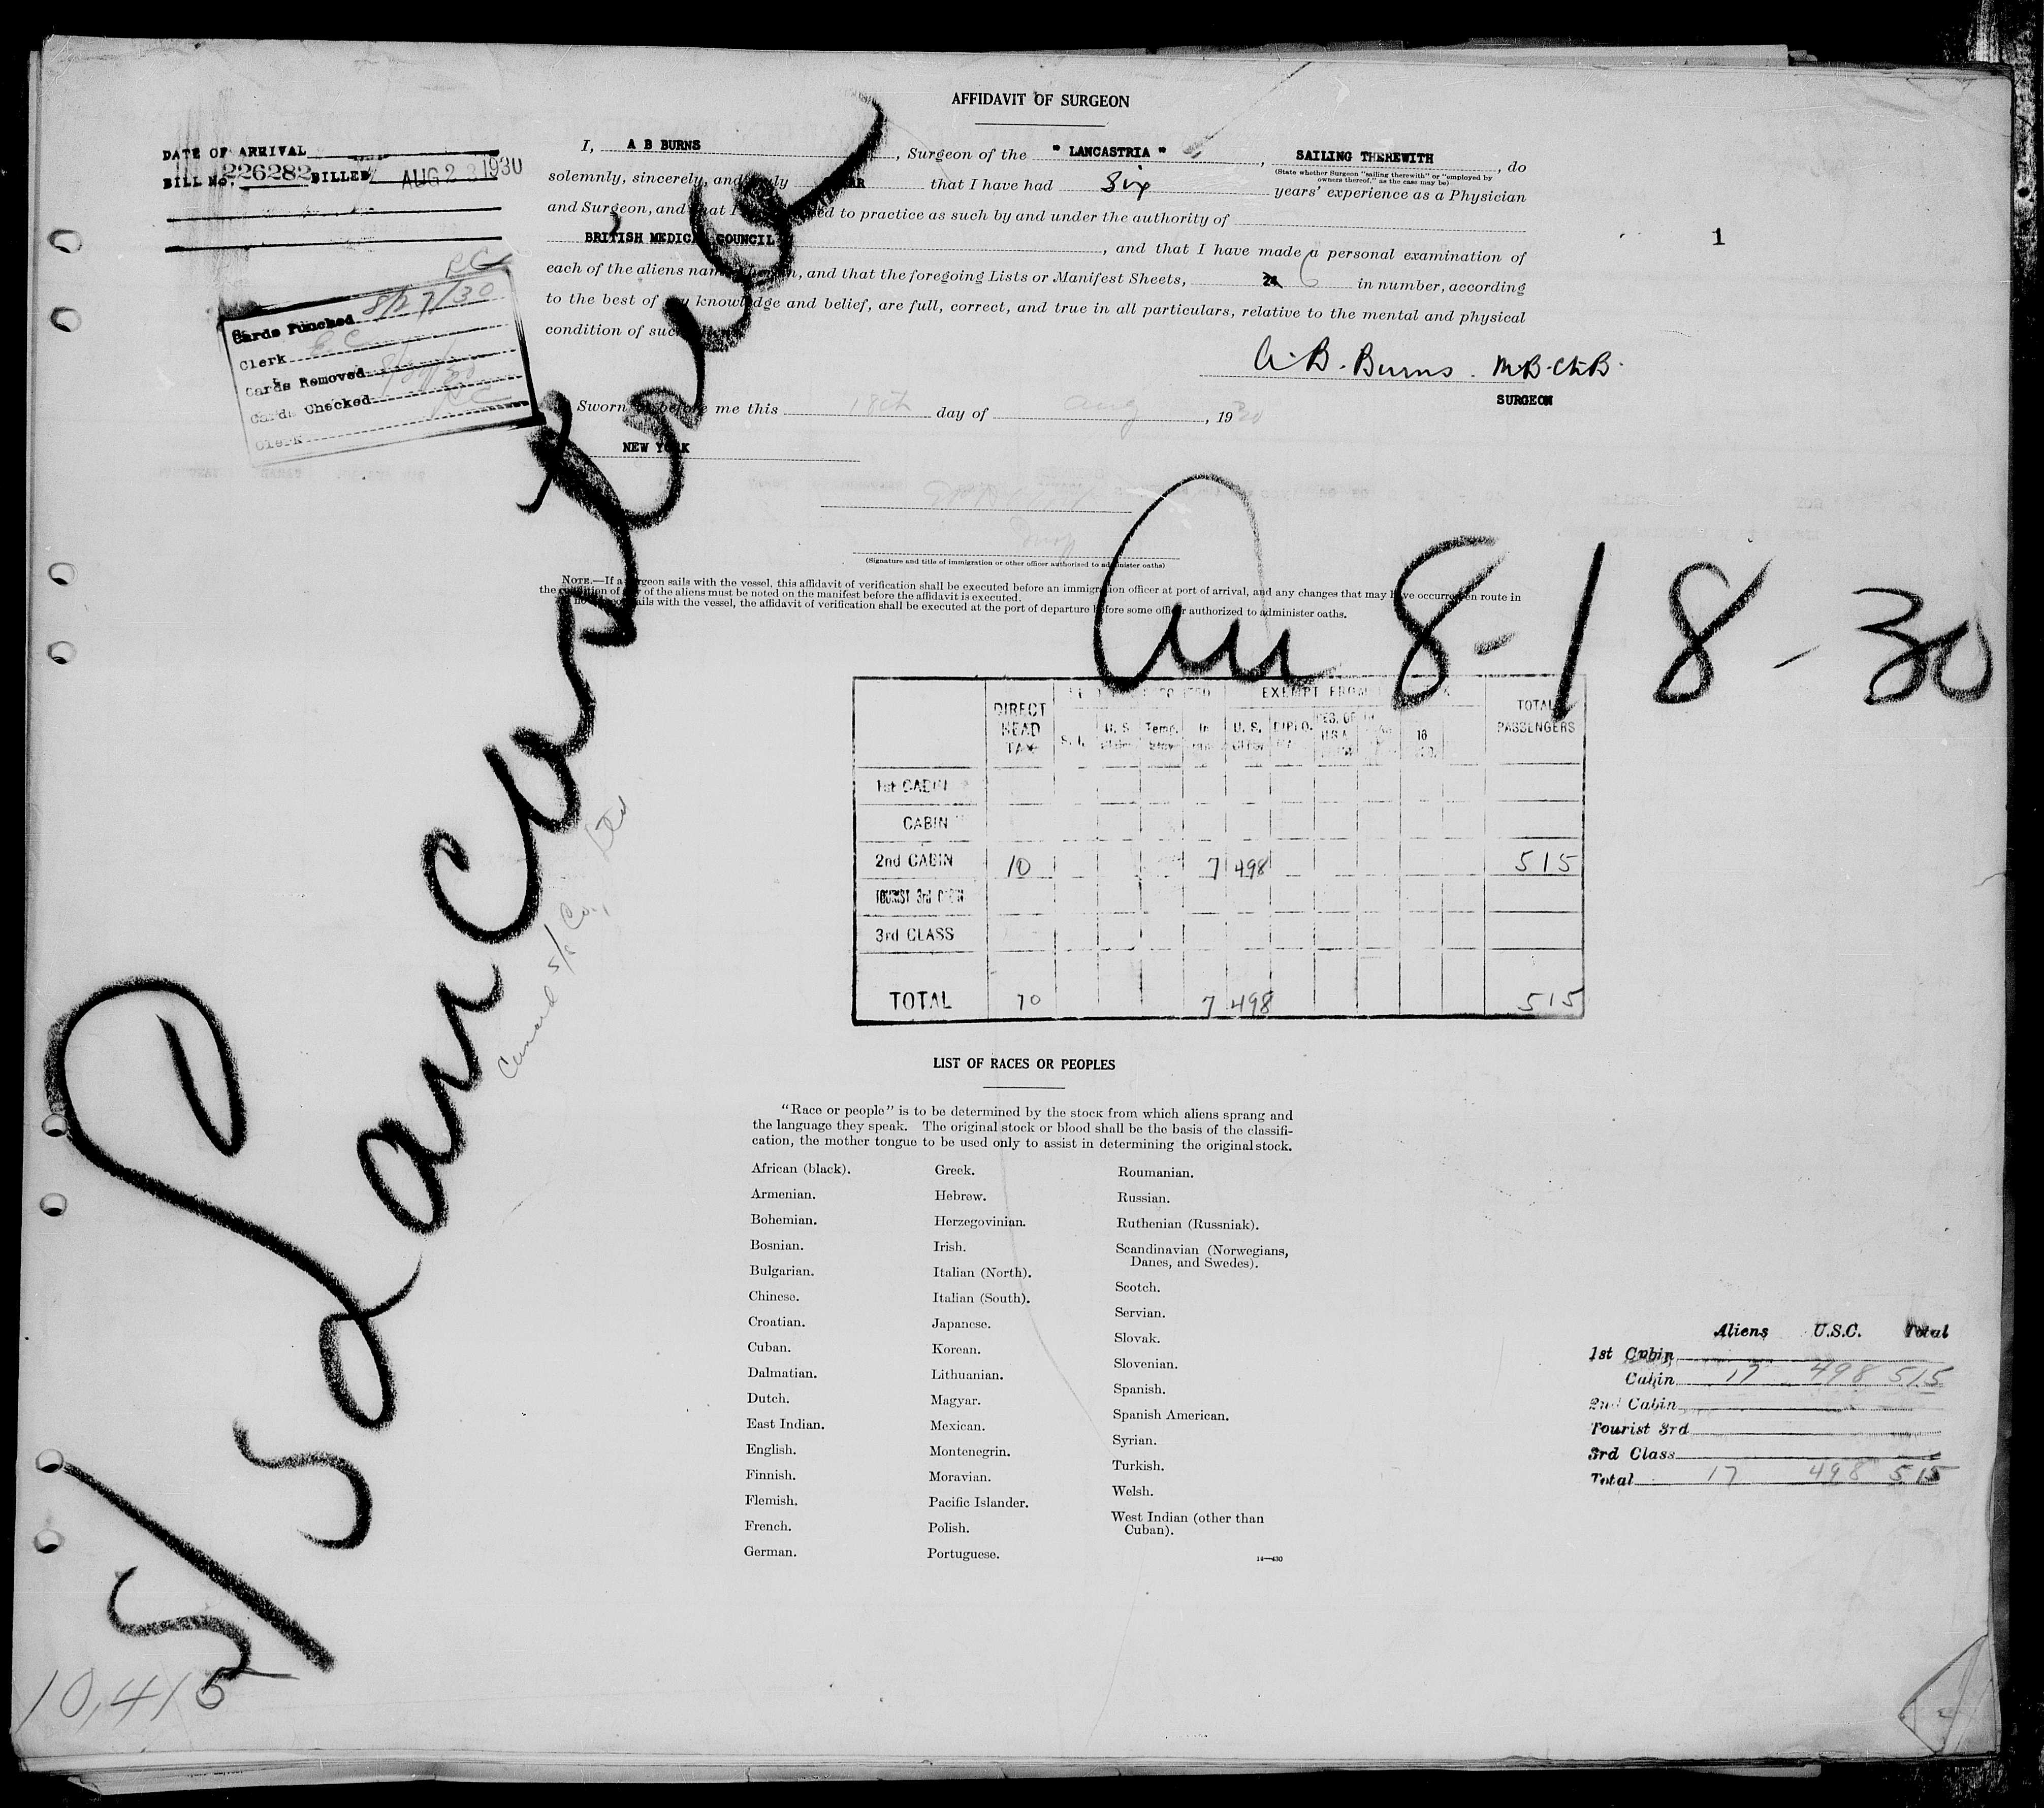 AFFIDAVIT OF SURGEON
DATE OF ARRIVAL
BILL No. 226282 BILLED AUG 23 1930
I, A B BURNS, Surgeon of the "LANCASTRIA", SAILING THEREWITH, do
(State whether Surgeon "sailing therewith" or "employed by
owners thereof," as the case may be)
solemnly, sincerely, and that I have had Six years' experience as a Physician
and Surgeon, and to practice as such by and under the authority of
BRITISH MEDICAL COUNCIL, and that I have made a personal examination of
each of the aliens named, and that the foregoing Lists or Manifest Sheets, 24 6 in number, according
to the best of my knowledge and belief, are full, correct, and true in all particulars, relative to the mental and physical
condition of
1
8/27/30
Cards Punched
Clerk EC
Cards Removed
Cards Checked
Clerk
A. B. Burns. M.B. Ch.B.
SURGEON
Sworn before me this 18th day of Aug, 1930
NEW YORK
(Signature and title of immigration or other officer authorized to administer oaths)
NOTE.—If a surgeon sails with the vessel, this affidavit of verification shall be executed before an immigration officer at port of arrival, and any changes that may have occurred en route in
the condition of any of the aliens must be noted on the manifest before the affidavit is executed.
sails with the vessel, the affidavit of verification shall be executed at the port of departure before some officer authorized to administer oaths.
S/S Lancastria
8-18-30
Cunard S/S Co., Ltd
DIRECT HEAD TAX
EXEMPT FROM
TOTAL PASSENGERS
S.I. U.S. Temp. In U.S. DIPLO. RES. OF U.S.A. 16
1st CABIN
CABIN
2nd CABIN 10 7 498 515
TOURIST 3rd CABIN
3rd CLASS
TOTAL 10 7 498 515
LIST OF RACES OR PEOPLES
"Race or people" is to be determined by the stock from which aliens sprang and
the language they speak. The original stock or blood shall be the basis of the classifi-
cation, the mother tongue to be used only to assist in determining the original stock.
African (black).
Armenian.
Bohemian.
Bosnian.
Bulgarian.
Chinese.
Croatian.
Cuban.
Dalmatian.
Dutch.
East Indian.
English.
Finnish.
Flemish.
French.
German.
Greek.
Hebrew.
Herzegovinian.
Irish.
Italian (North).
Italian (South).
Japanese.
Korean.
Lithuanian.
Magyar.
Mexican.
Montenegrin.
Moravian.
Pacific Islander.
Polish.
Portuguese.
Roumanian.
Russian.
Ruthenian (Russniak).
Scandinavian (Norwegians,
Danes, and Swedes).
Scotch.
Servian.
Slovak.
Slovenian.
Spanish.
Spanish American.
Syrian.
Turkish.
Welsh.
West Indian (other than
Cuban).
14—430
Aliens U.S.C. Total
1st Cabin
Cabin 17 498 515
2nd Cabin
Tourist 3rd
3rd Class
Total 17 498 515
10,415